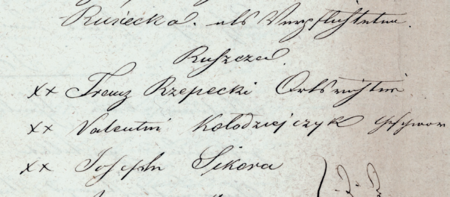 Rusiecka. als Verpflichtete.
Ruszcza.
xx Franz Rzepecki Ortsrichter
xx Valentin Kolodziejczyk Geschwor
xx Joseph Sikora